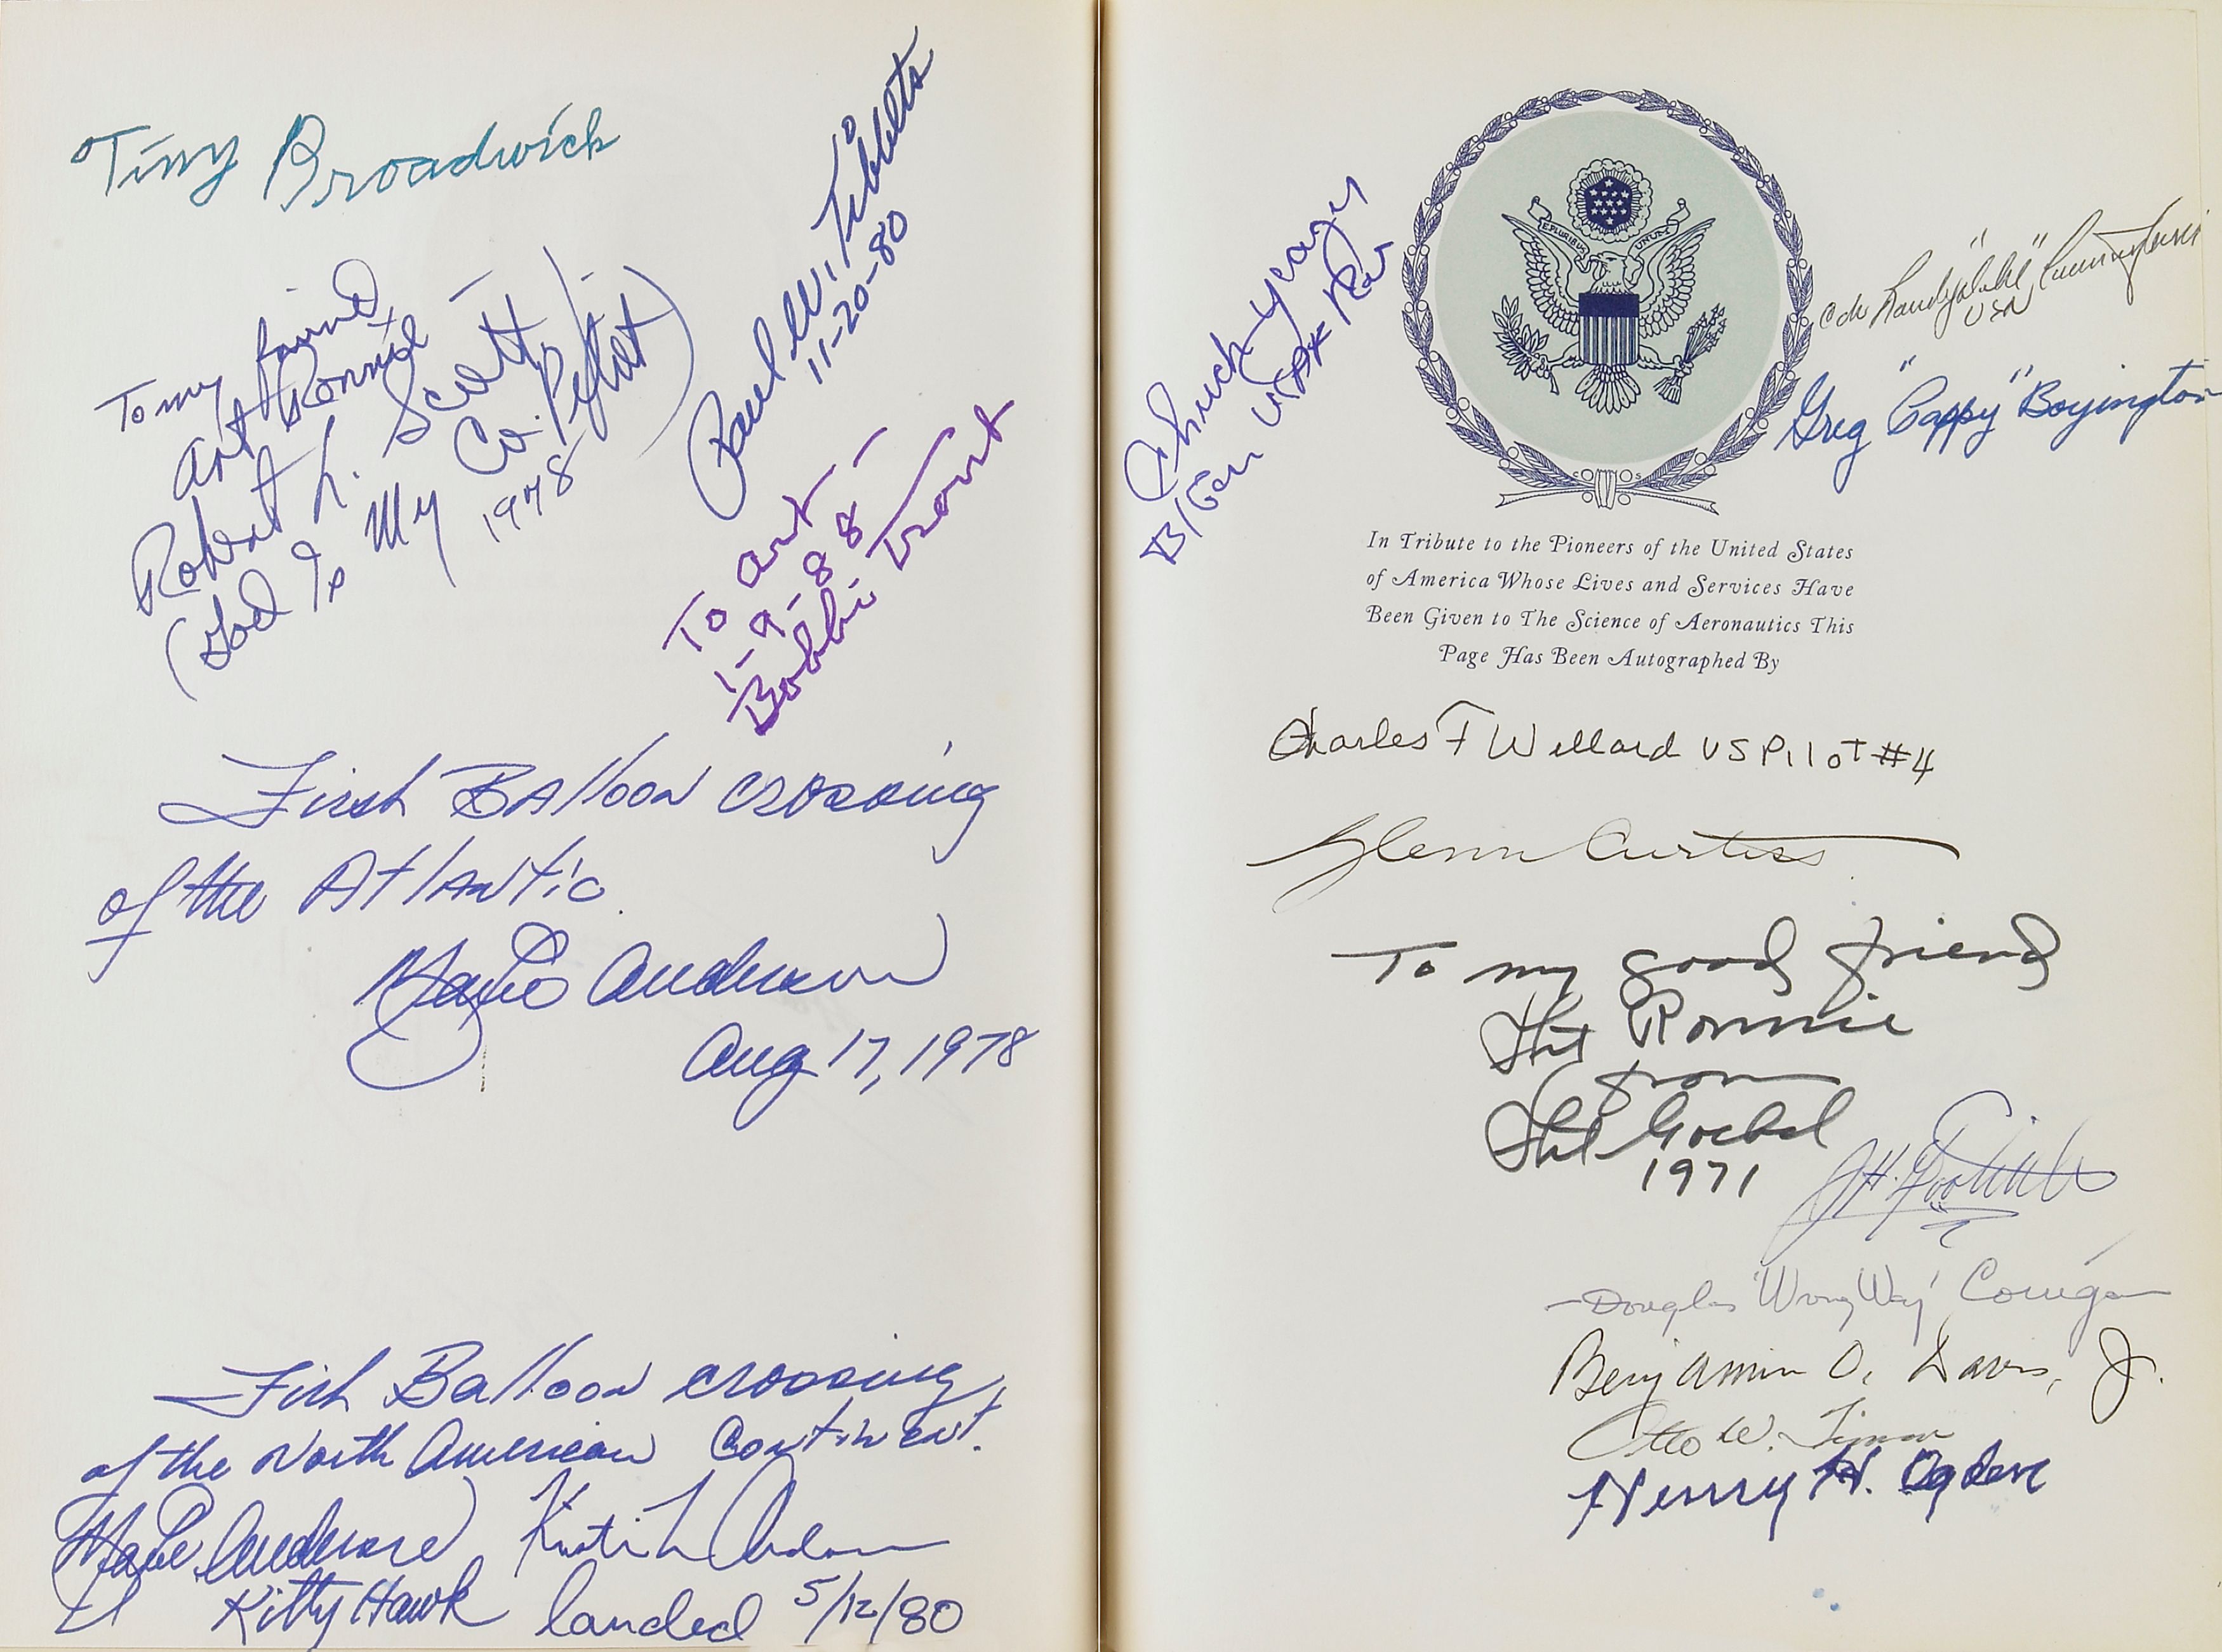 Tiny Broadwick
To my friend
Art Ronnie
Robert L. Scott Jr.
(God Is My Co-Pilot)
1978
Paul W. Tibbets
11-20-80
To Art -
1-9-88-
Bobbi Trout
First Balloon crossing
of the Atlantic.
Maxie Anderson
Aug 17, 1978
First Balloon crossing
of the North American Continent.
Maxie Anderson Kristian Anderson
Kitty Hawk landed 5/12/80
Chuck Yeager
B/Gen USAF Ret
E PLURIBUS UNUM
Cdr Randy "Duke" Cunningham
USN
Greg "Pappy" Boyington
In Tribute to the Pioneers of the United States
of America Whose Lives and Services Have
Been Given to The Science of Aeronautics This
Page Has Been Autographed By
Charles F Willard US Pilot #4
Glenn Curtiss
To my good friend
Art Ronnie
from
Art Goebel
1971
J.H. Doolittle
- Douglas 'Wrong Way' Corrigan
Benjamin O. Davis, Jr.
Otto W. Timm
Henry H. Ogden